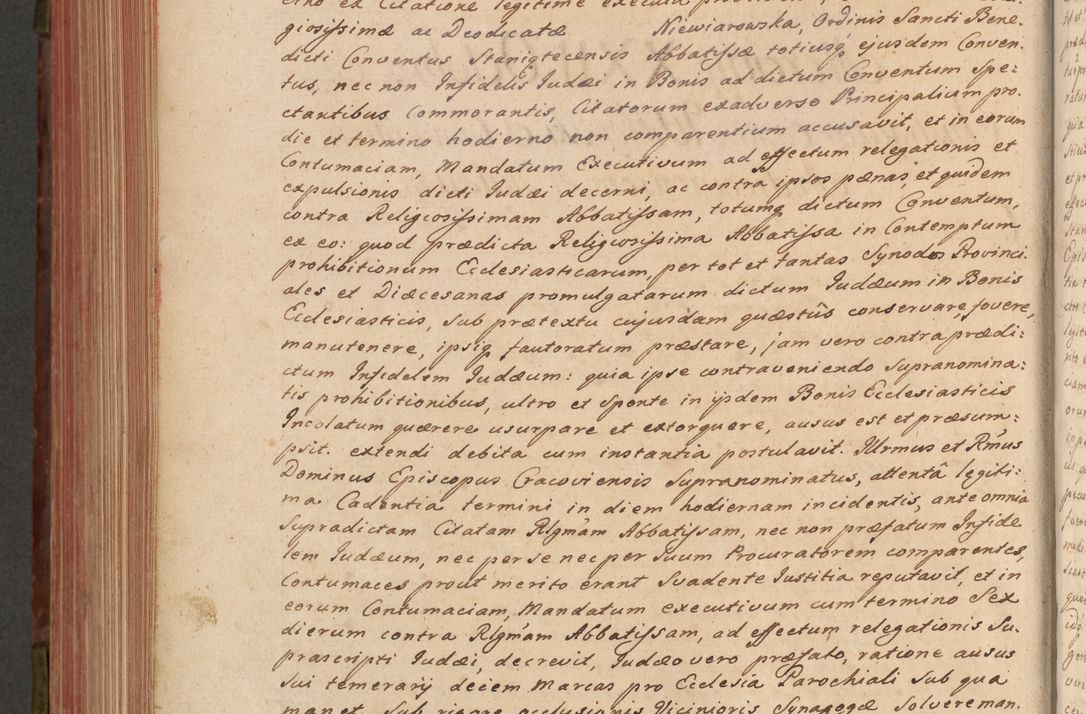 giosissimæ ac Deodicatæ Niewiarowska, Ordinis Sancti Bene-
dicti Conventus Stanigtecensis Abbatissæ totiusq́ ejusdem Conven-
tus, nec non Infidelis Judæi in Bonis ad dictum Conventum Spe:
ctantibus Commorantis, Citatorum exadverso Principalium pro.
die et termino hodierno non comparentium accusavit, et in eorum
Contumaciam, Mandatum Executivum ad effectum relegationis et
expulsionis dicti Judæi decerni, ac contra ipsos pænas, et quidem
contra Religiosissimam Abbatissam, totumq dictum Conventum,
ex eo: quod prædicta Religiosissima Abbatissa in Contemptum
prohibitionum Ecclesiasticarum, per tot et tantas Synodos Provinci
ales et Diæcesanas promulgatarum dictum Judæum in Bonis
Ecclesiasticis, sub prætextu cujusdam quæstûs conservare, fovere,
manutenere, ipsiq fautoratum præstare, jam vero contra prædi-
ctum Infidelem Judæum: quia ipse contraveniendo Supranomina:
tis prohibitionibus, ultro et sponte in ijsdem Bonis Ecclesiasticis
Incolatum quærere usurpare et extorquere, ausus est et præsum:
psit. extendi debita cum instantia postulavit. Illrmus et Rmus
Dominus Episcopus Cracoviensis Supranominatus, attentâ legiti:
ma Cadentia termini in diem hodiernam incidentis, ante omnia
Supradictam Citatam Rlgmam Abbatissam, nec non præfatum Infide
lem Judæum, nec per se nec per Suum Procuratorem comparentes,
Contumaces prout merito erant Suadente Justitia reputavit, et in
eorum Contumaciam, Mandatum executivum cum termino Sex
dierum contra Rlgmam Abbatissam, ad effectum relegationis Su-
prascripti Judæi, decrevit, Judæo vero præfato, ratione ausus
sui temerarij decem Marcas pro Ecclesia Parochiali sub qua
manet, sub rigore acclusionis Vicinioris Synagogæ Solvere man-